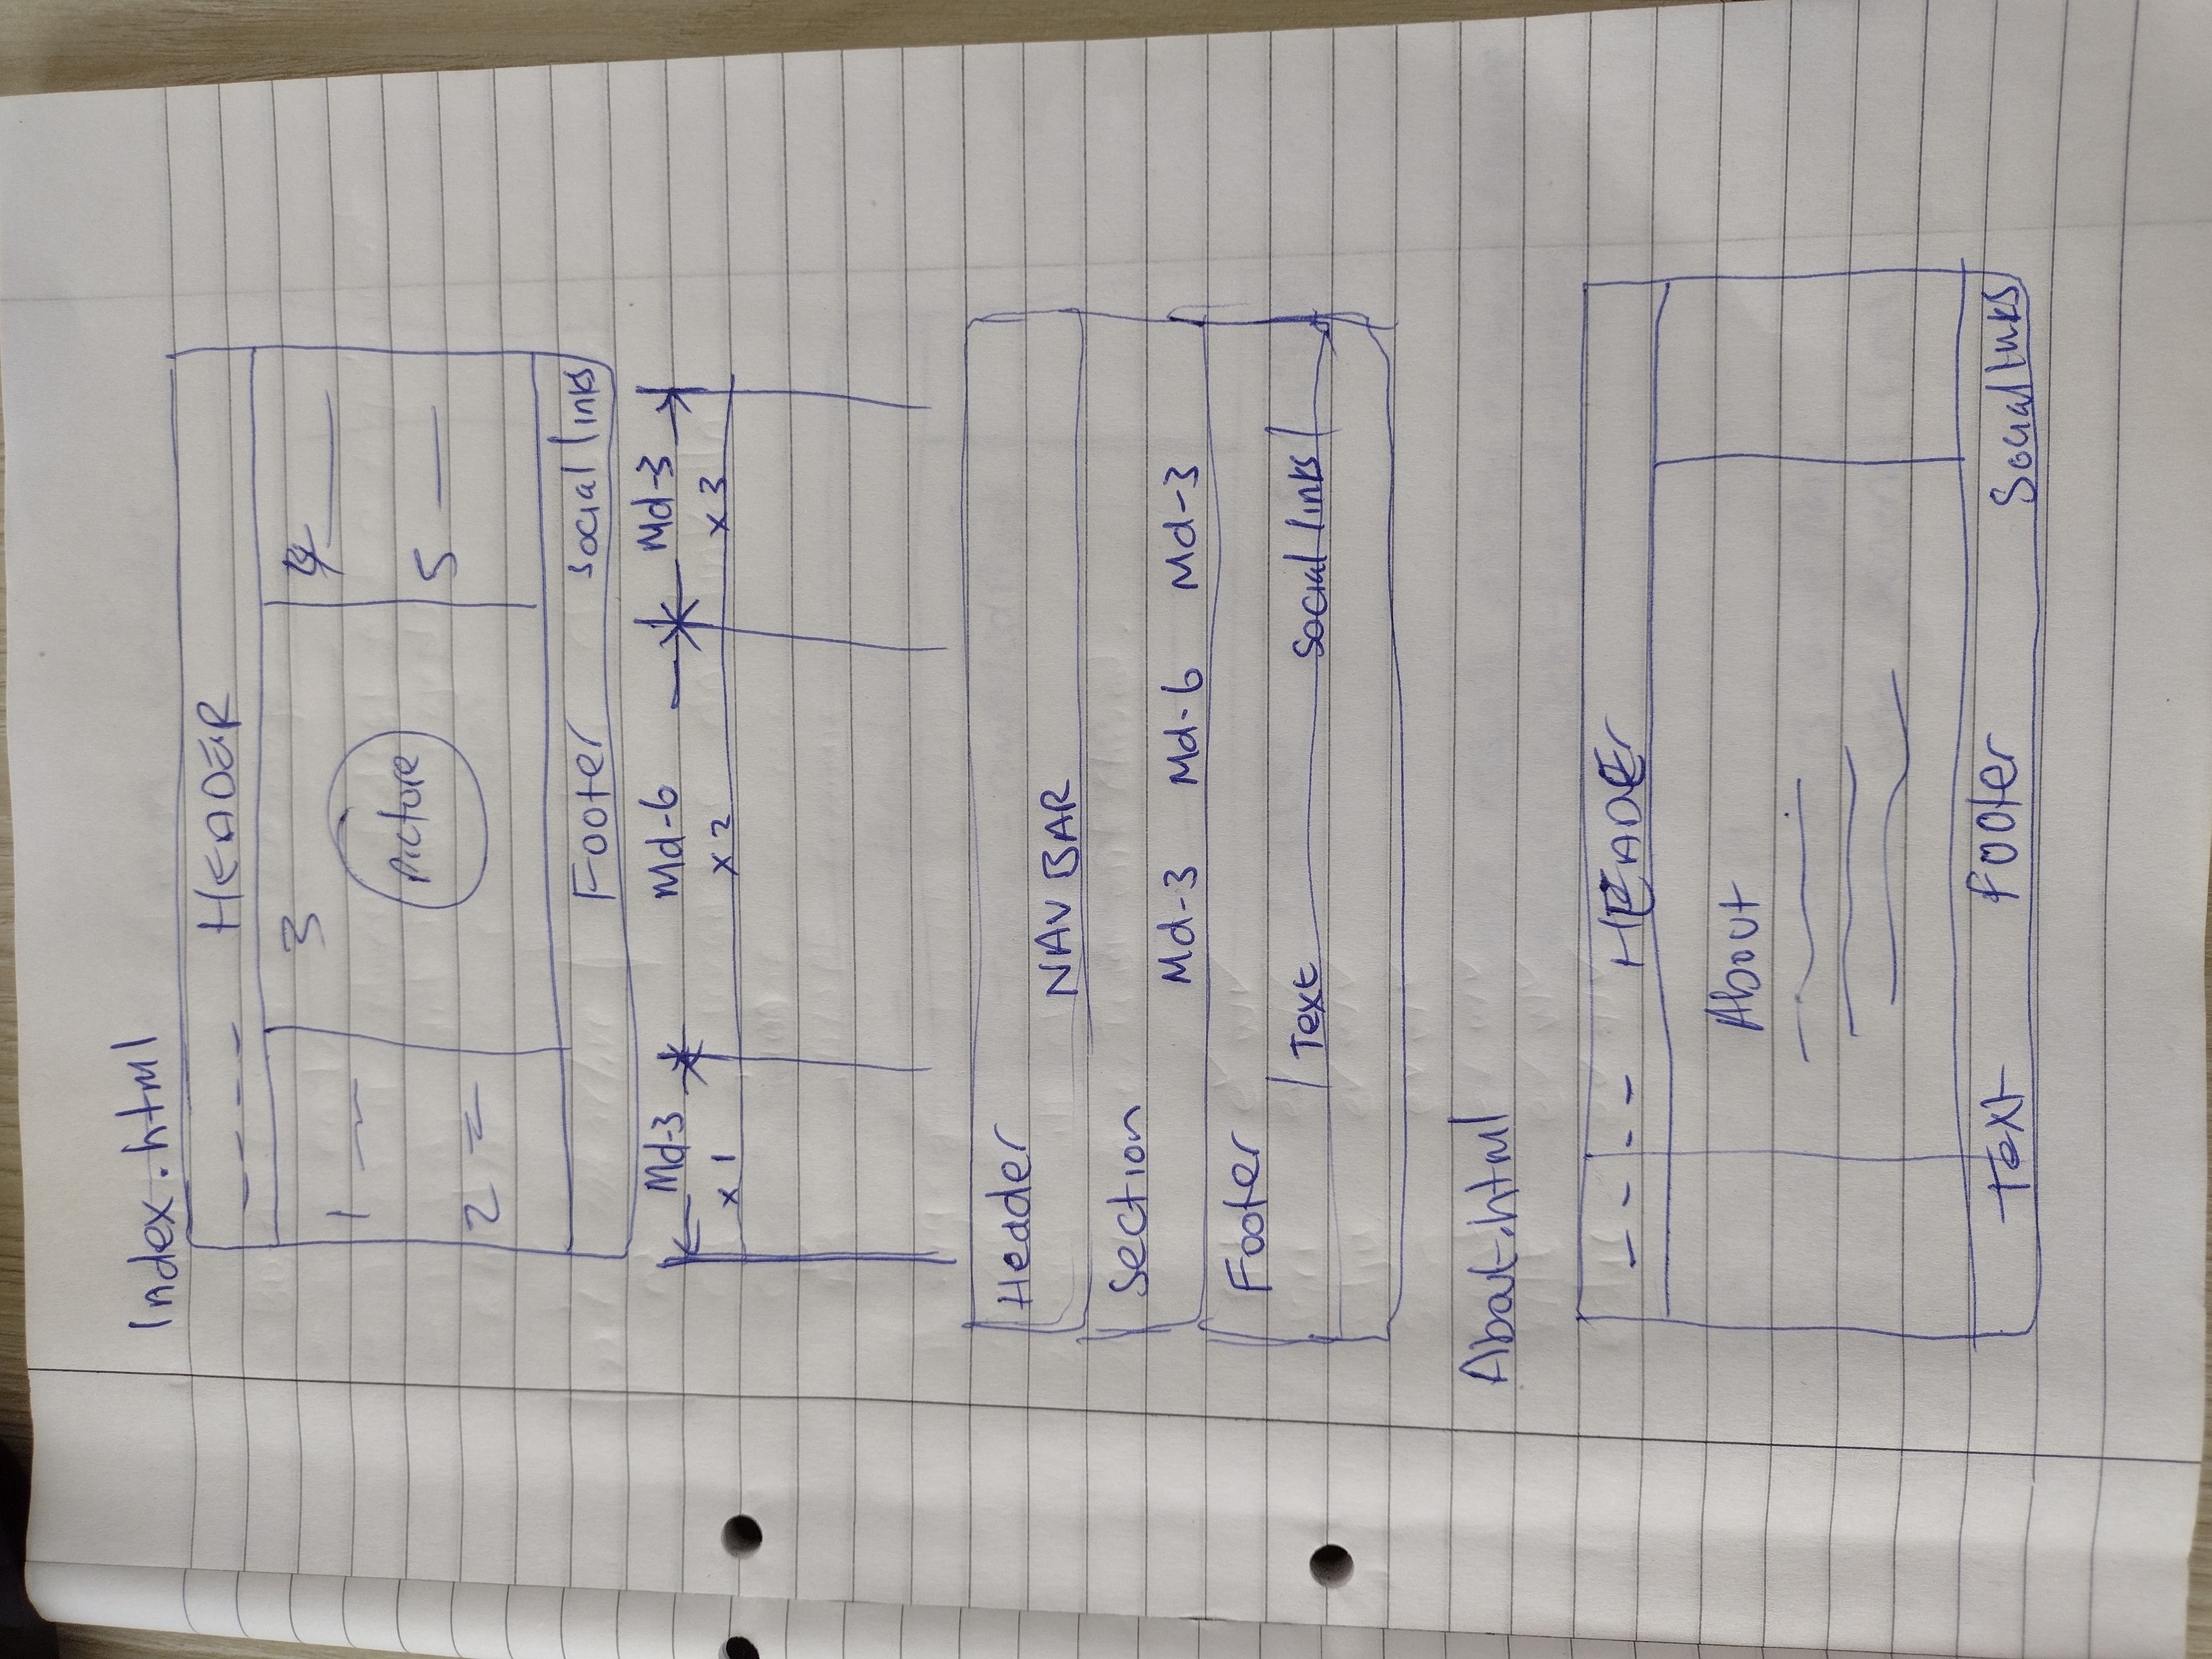 Index.html
HEADER
3
4
1
Picture
5
2
Footer social links
Md-3 Md-6 Md-3
x 1 x 2 x 3
Header
NAV BAR
Section
Md-3 Md-6 Md-3
Footer
Text Social links
About.html
HEADEr
About
Text Footer Social links